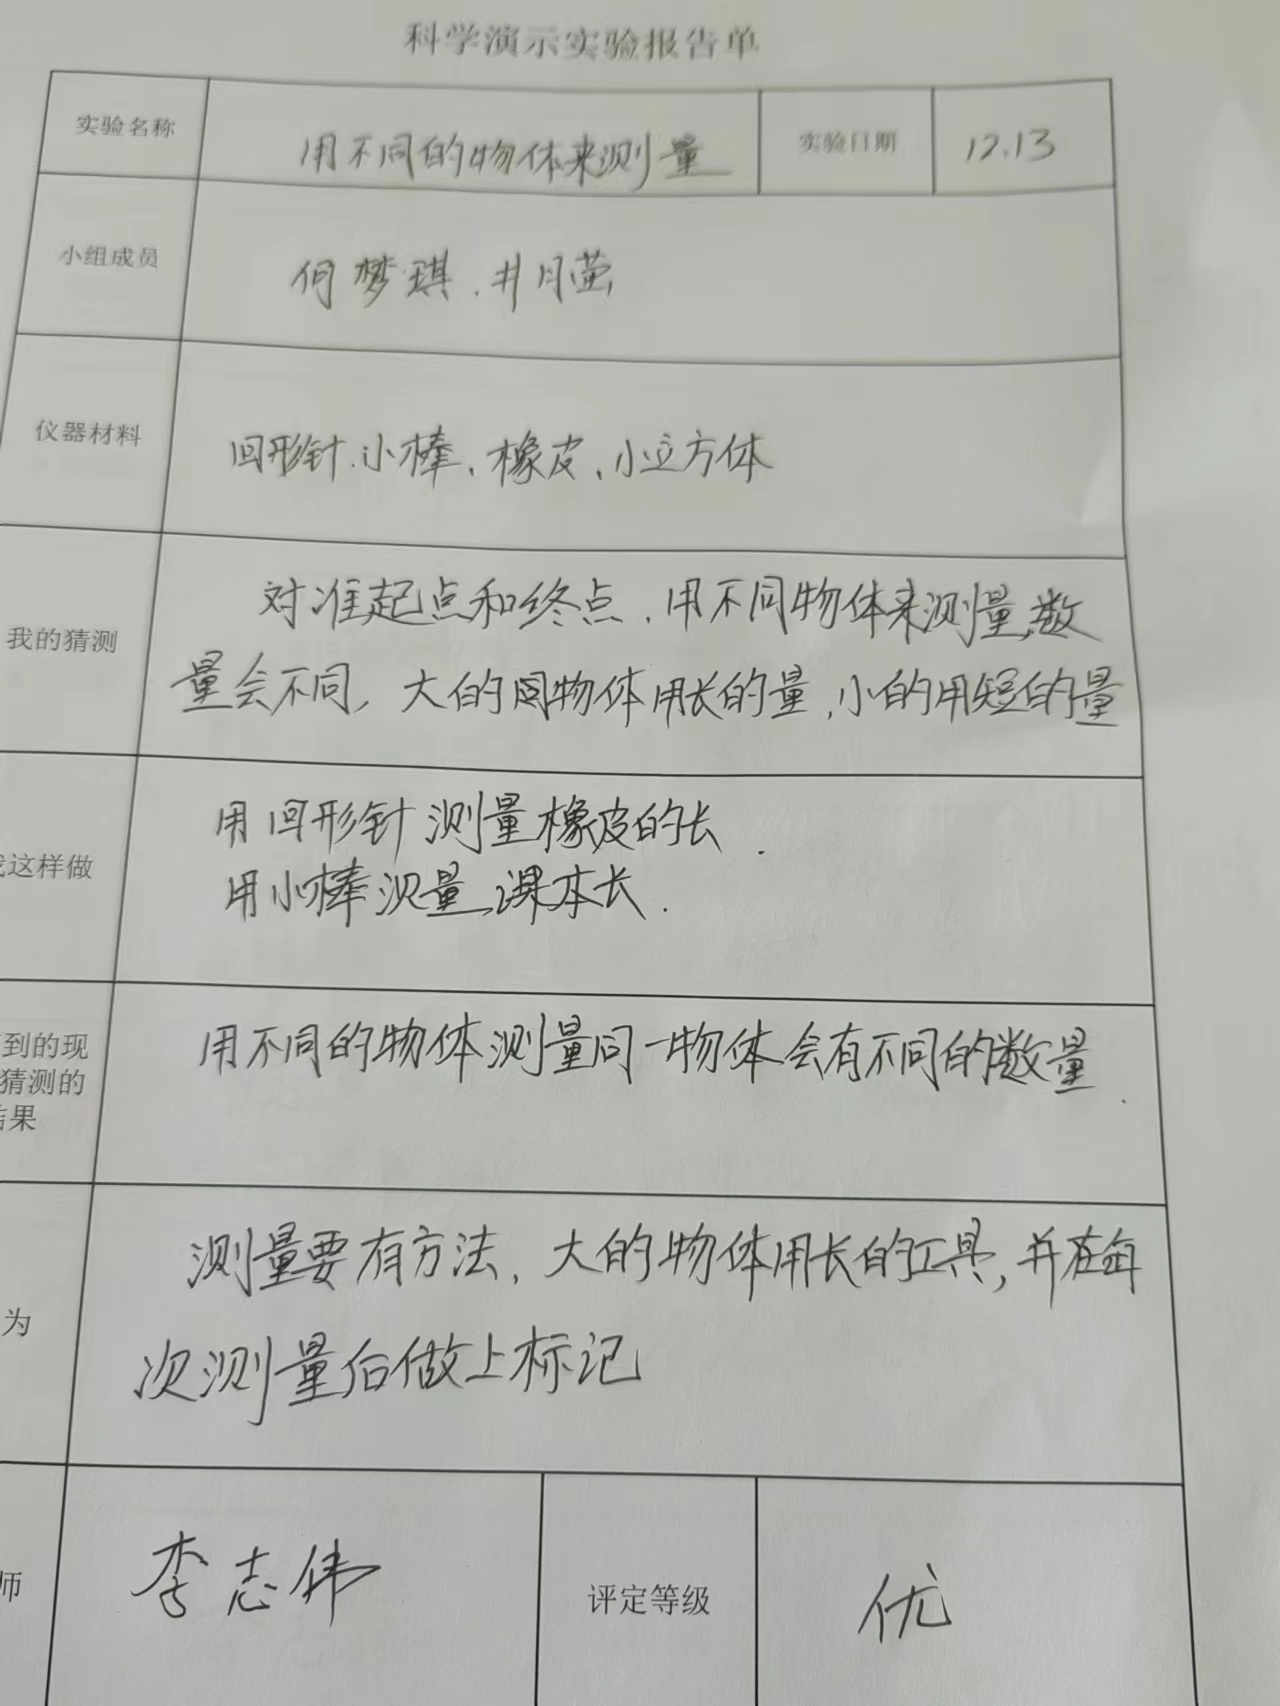 科学演示实验报告单
实验名称 用不同的物体来测量 实验日期 12.13
小组成员 何梦琪、井月萤
仪器材料 回形针、小棒、橡皮、小立方体
对准起点和终点,用不同物体来测量,数
我的猜测
量会不同,大的物体用长的量,小的用短的量
用回形针测量橡皮的长.
这样做
用小棒测量课本长.
到的现 用不同的物体测量同一物体会有不同的数量.
猜测的
结果
测量要有方法,大的物体用长的工具,并在每
为
次测量后做上标记
师 李志伟 评定等级 优